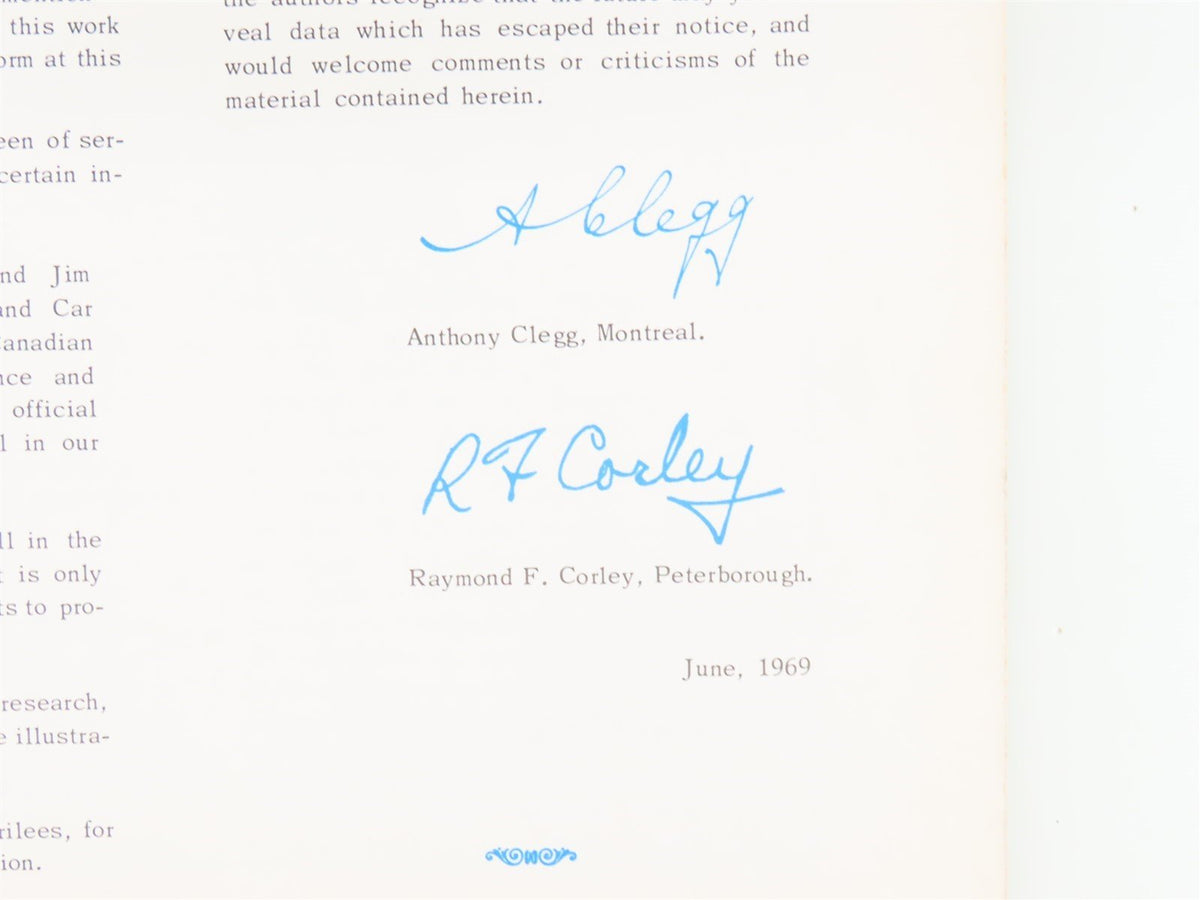 this work
orm at this
een of ser-
certain in-
nd Jim
and Car
Canadian
nce and
official
l in our
ll in the
is only
ts to pro-
research,
e illustra-
rilees, for
ion.
the authors recognize that the future may
veal data which has escaped their notice, and
would welcome comments or criticisms of the
material contained herein.
A Clegg
Anthony Clegg, Montreal.
R F Corley
Raymond F. Corley, Peterborough.
June, 1969